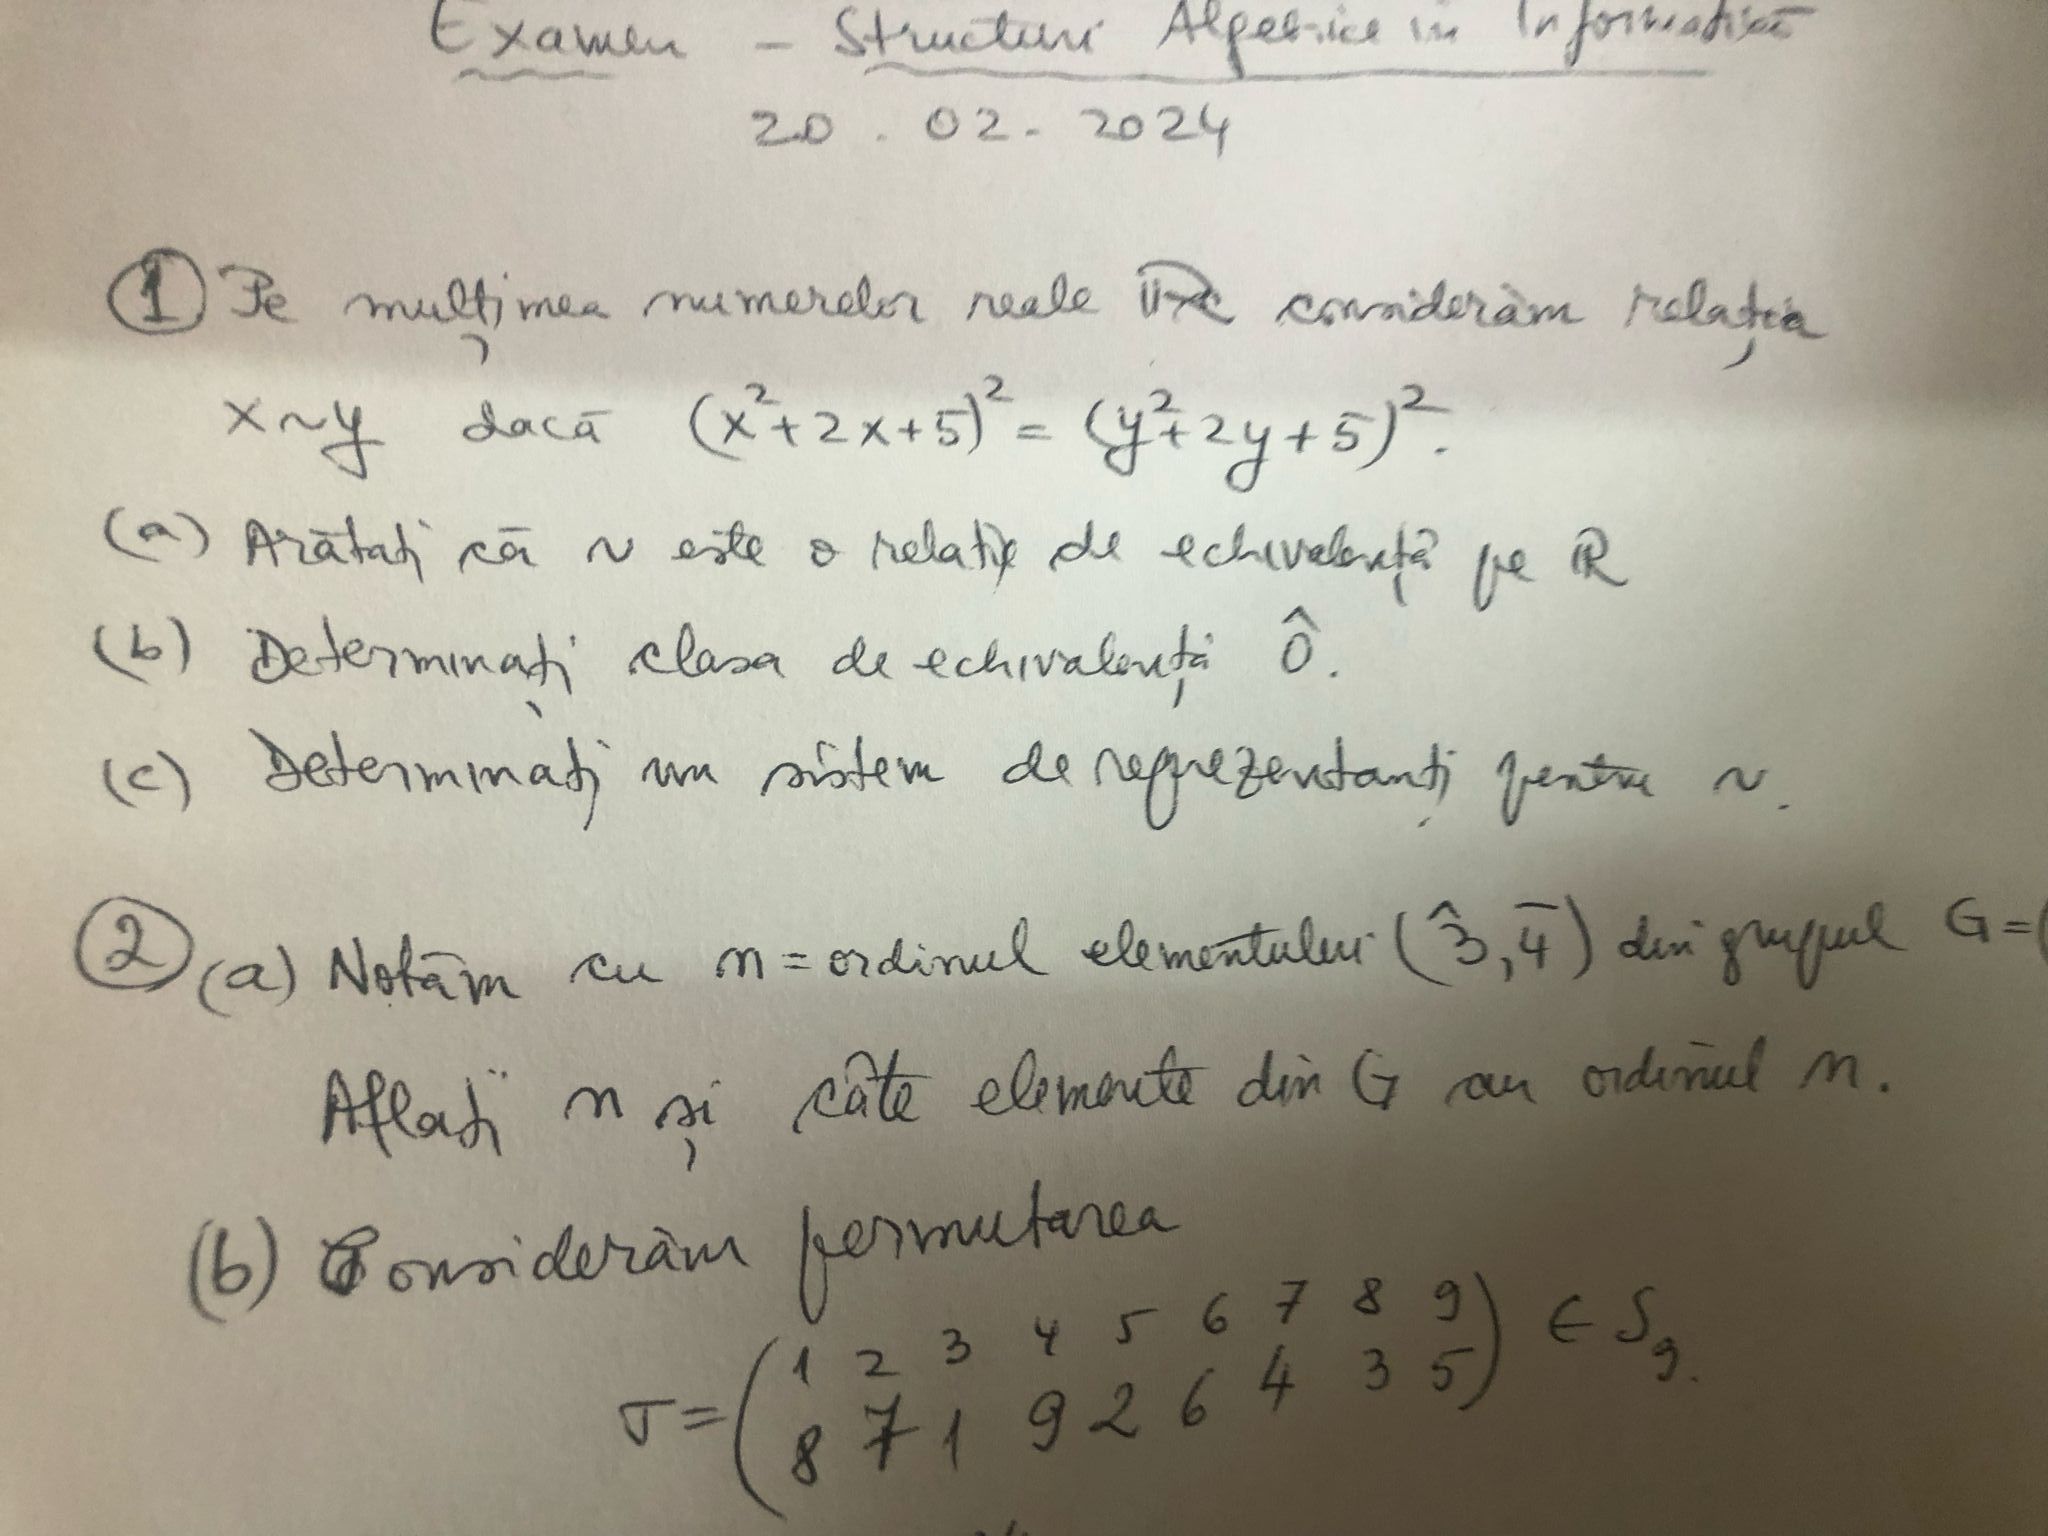 Examen - Structuri Algebrice in Informatică
20.02.2024
① Pe mulțimea numerelor reale ℝ considerăm relația
x~y dacă (x²+2x+5)² = (y²+2y+5)².
(a) Arătați că ~ este o relație de echivalență pe ℝ
(b) Determinați clasa de echivalență 0̂.
(c) Determinați un sistem de reprezentanți pentru ~.
② (a) Notăm cu n = ordinul elementului (3̂, 4̄) din grupul G=(
Aflați n și câte elemente din G au ordinul n.
(b) Considerăm permutarea
1 2 3 4 5 6 7 8 9
σ = ( 8 7 1 9 2 6 4 3 5 ) ∈ S₉.